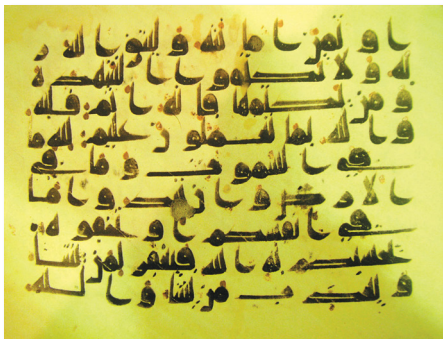 اوتمن امانته وليتق الله ر
به ولا تكتموا الشهدة
ومن يكتمها فانه اثم قلبه
والله بما تعملون عليم لله ما
في السموت وما في
الارض وان تبدوا ما
في انفسكم او تخفوه
يحسبكم به الله فيغفر لمن يشا
ويعذب من يشا والله